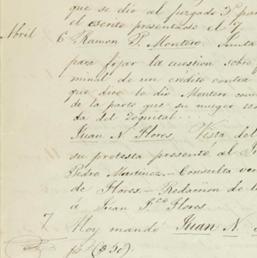 que se dio al juzgado 3º para
el escrito presentado el 4
Abril
6 Ramon P. Montero. Junta
para fijar la cuestion sobre
minal de un crédito contra
que dice la dio Montero como
de la parte que su muger
da del Zoquital.
Juan N. Flores. Vista del
su protesta presenté al
Pedro Martinez - Consulta
de Flores. - Redaccion de la
á Juan Fco Flores.
7 Hoy mandó Juan N.
ps ($ 50).